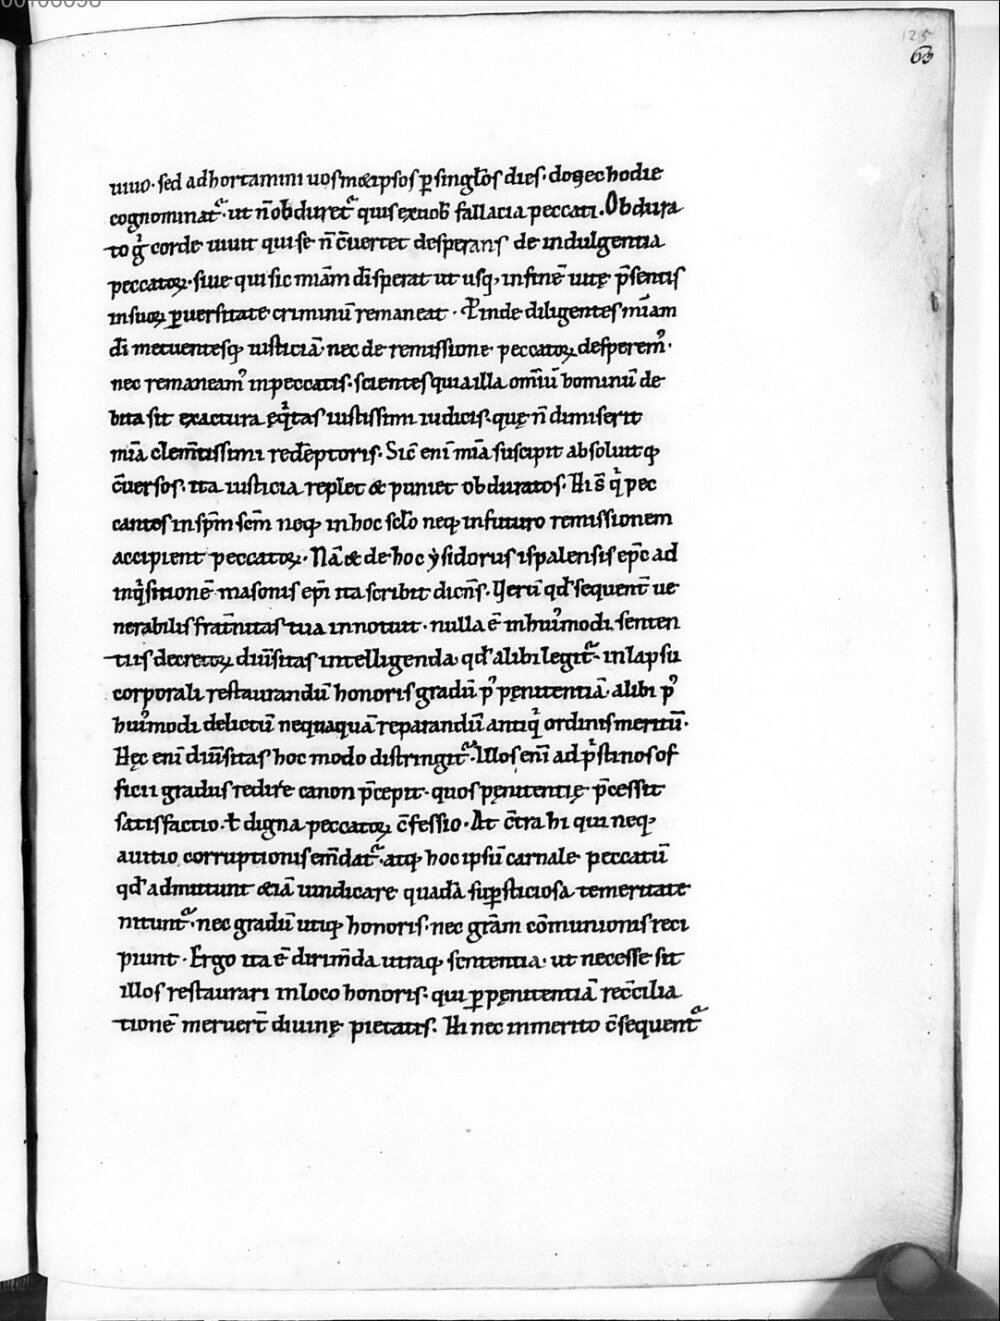 125
63
uiuo· sed adhortamini uosmetipsos p̱ singłos dies· donec hodie
cognominat᷑· ut n̄ obduret᷑ quis exuob̄ fallacia peccati. Obdura
to g̊ corde uiuit qui se n̄ c̄uertet desperans de indulgentia
peccatoꝝ· siue qui sic mīam disperat ut usq; in finē uitę p̄sentis
in suoꝝ ꝑuersitate criminū remaneat· Proinde diligentes mīam
dī metuentesq; iusticiā nec de remissione peccatoꝝ desperem᷒·
nec remaneam᷒ in peccatis· scientes quia illa omīū hominū de
bita sit exactura ęqͥtas iustissimi iudicis· quę n̄ dimiserit
mīa clem̄tissimi redēptoris. Sic̄ enī mīa suscipit absoluitq;
c̄uersos· ita iusticia replet & puniet obduratos. Hi s̄ qͥ pec
cantes in sp̄m sc̄m neq; in hoc sc̄lo neq; in futuro remissionem
accipient peccatoꝝ· Nā & de hoc ẏsidorus ispalensis ep̄c ad
inqͥsitionē masonis ep̄i ita scribit dicn̄s. Uerū qd̄ sequent̄ ue
nerabilis frat̄nitas tua innotuit· nulla ē in hui᷒modi senten
tiis decretoꝝ diūsitas intelligenda qd̄ alibi legit᷑· in lapsu
corporali restaurandū honoris gradū p᷒ pęnitentiā· alibi p᷒
hui᷒modi delictū nequaquā reparandū antiqͥ ordinis meritū·
Hęc enī diūsitas hoc modo distringit᷑· Illos enī ad pͥstinos of
ficii gradus redire canon p̄cepit· quos pęnitentię p̄cessit
satisfactio· ł digna peccatoꝝ c̄fessio· At c̄tra hi qui neq;
a uitio corruptionis em̄dat᷑· atq; hoc ipsū carnale peccatū
qd̄ admittunt etiā uindicare quadā suꝑsticiosa temeritate
nitunt᷑· nec gradū utiq; honoris· nec gr̄am cōmunionis reci
piunt· Ergo ita ē dirim̄da utraq; sententia· ut necesse sit
illos restaurari in loco honoris· qui ꝑ pęnitentiā rec̄cilia
tionē meruer̄t diuinę pietatis. Hi nec inmerito c̄sequent᷑